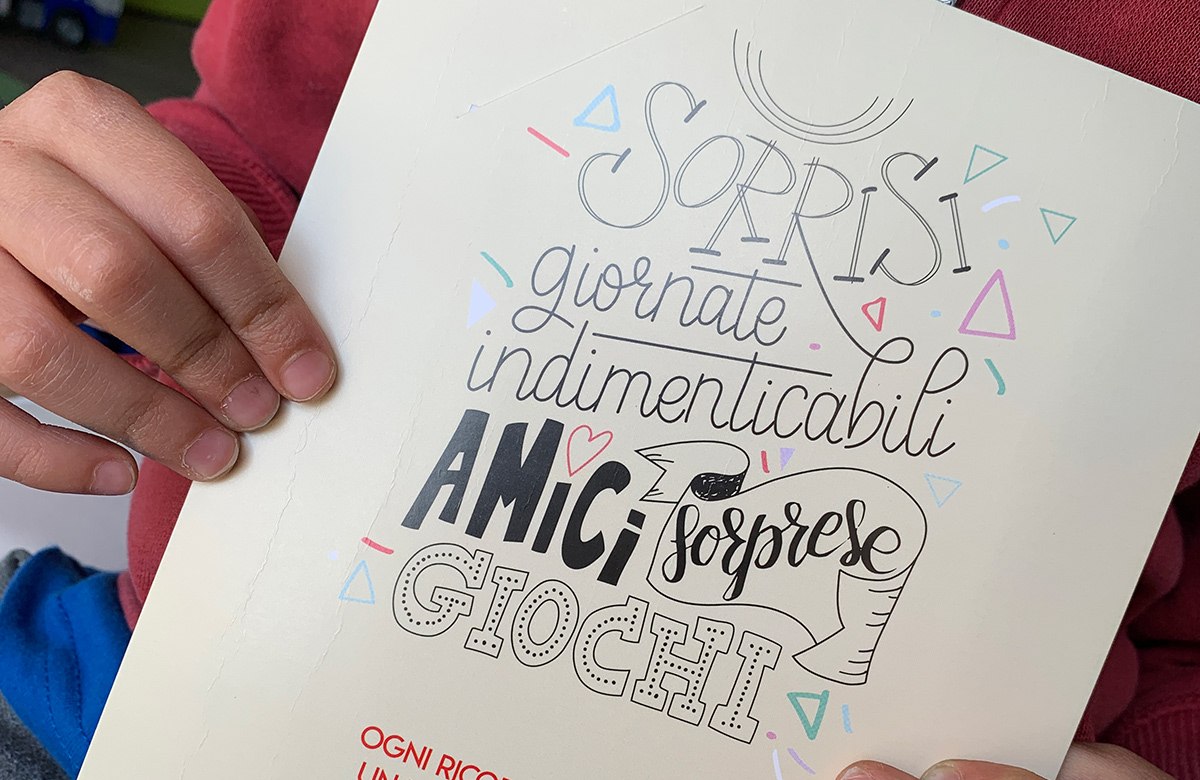 SORRISI
giornate
indimenticabili
AMiCi sorprese
GIOCHI
OGNI